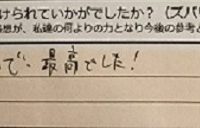 けられていかがでしたか？（ズバリ
感想が、私達の何よりの力となり今後の参考と
で、最高でした！